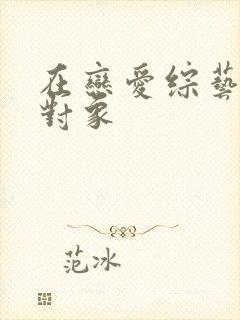 在戀愛綜藝
對象
范冰